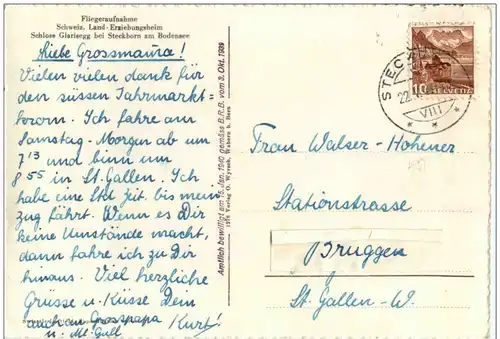 Fliegeraufnahme
Schweiz. Land-Erziehungsheim
Schloss Glarisegg bei Steckborn am Bodensee
Liebe Grossmama!
Vielen vielen dank für
den süssen Jahrmarkt-
krom. Ich fahre am
Samstag-Morgen ab um
7 13 und binn um
8 55 in St. Gallen. Ich
habe eine Std Zeit. bis mein
zug fährt. Wenn es Dir
keine Umstände macht,
dann fahre ich zu Dir
hinaus. Viel herzliche
Grüsse u. Küsse Dem
auch an Grosspapa
Kurt!
Amtlich bewilligt am 15. Jan. 1940 gemäss B.R.B. vom 3. Okt. 1939
Verlag O. Wyrsch, Wabern b. Bern
10
HELVETIA
VIII
Frau Walser-Hohener
Stationstrasse
Bruggen
St. Gallen-W.